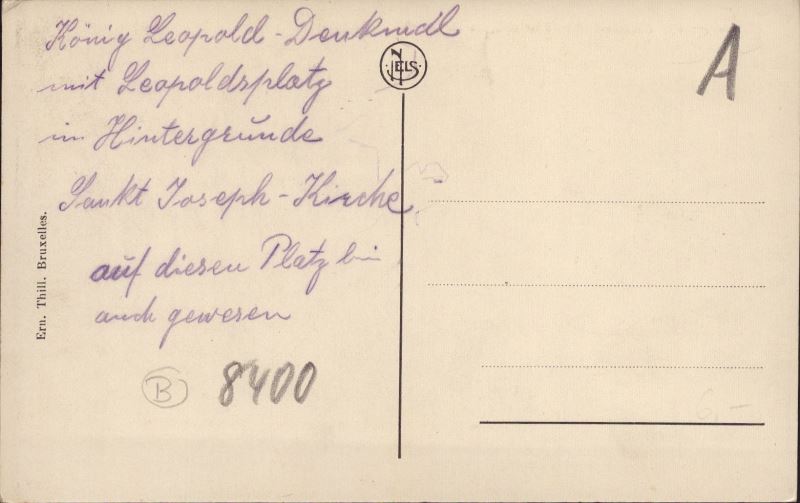 König Leopold-Denkmal
mit Leopoldsplatz
im Hintergrunde
Sankt Joseph-Kirche
auf diesen Platz bin
auch gewesen
B 8400
Ern. Thill. Bruxelles.
NELS
A
6,-